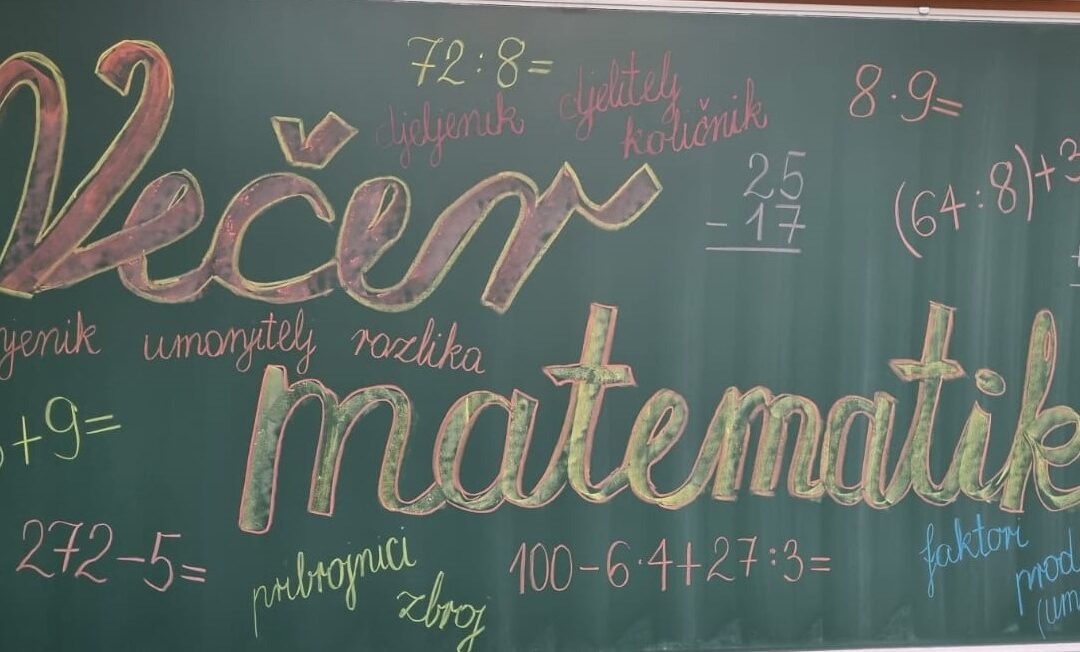 72:8=
djeljenik djelitelj
količnik
8·9=
Večer
25
- 17
(64:8)+3
umanjitelj razlika
matematik
+9=
272-5=
pribrojnici
zbroj
100-6·4+27:3=
faktori